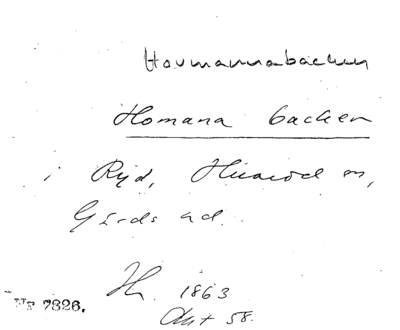 Hovmannabacken
Homana backen
i Ryd, Huaröd sn,
Gärds hd.
1863
Nr 7826.
58.